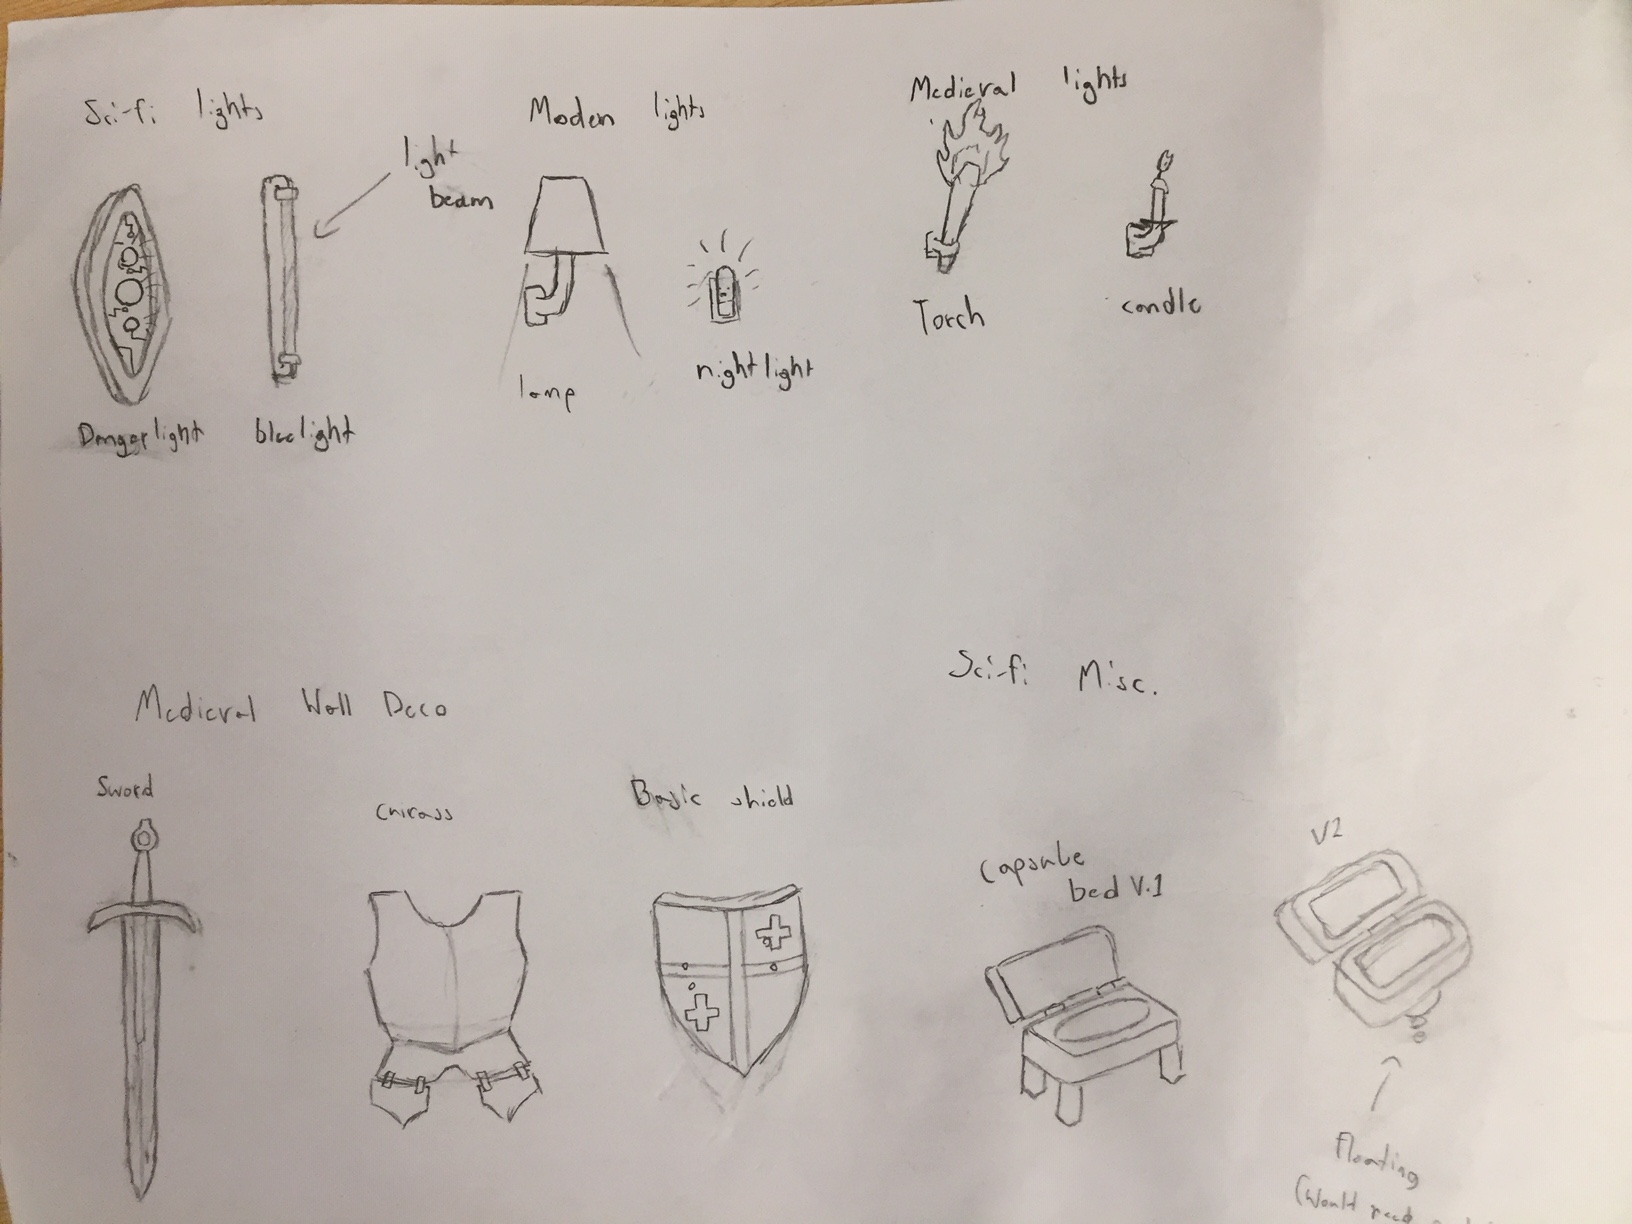 Sci-fi lights
Danger light
blue light
light
beam
Modern lights
lamp
nightlight
Medieval lights
Torch
candle
Medieval Wall Deco
Sword
Cuirass
Basic shield
Sci-fi Misc.
Capsule
bed V.1
V2
Floating
(Would need